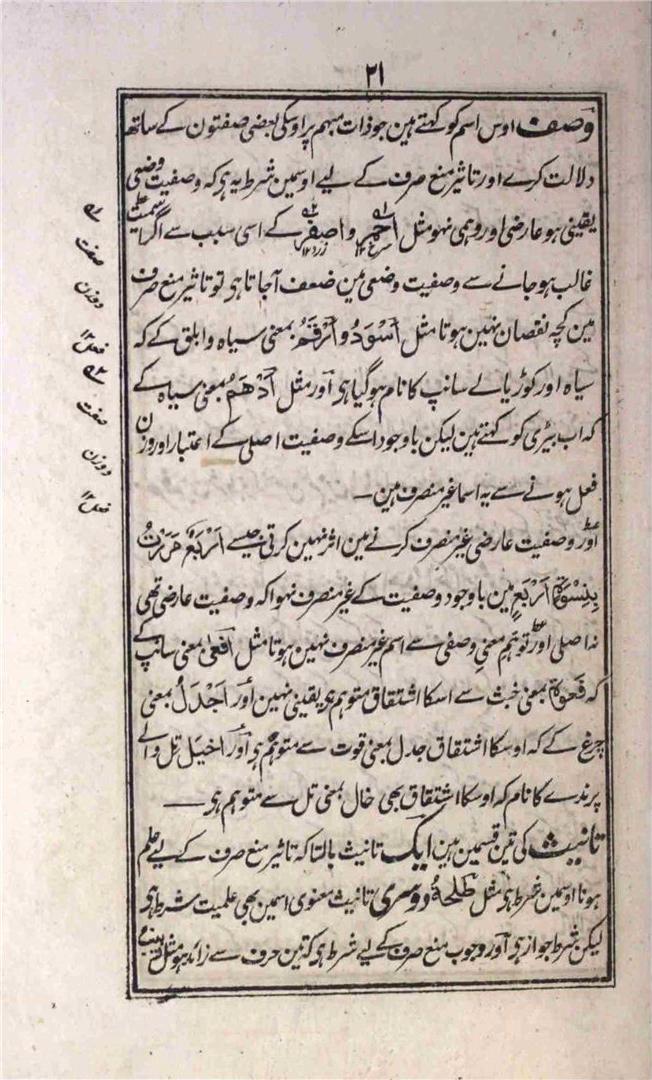 ۲۱
وصف اوس اسم کو کہتے ہین جو ذات مبہم پر اوسکی بعضی صفتون کے ساتھ
دلالت کرے اور تاثیر منع صرف کے لیے اوسمین شرط یہ ہی کہ وصفیت وضعی
یقینی ہو عارضی اور وہمی نہو مثل اَحْمَر و اَصْفَر کے اسی سبب سے اگر اسمیت علمیت
سرخ ۱۲ زرد ۱۲
غالب ہو جانے سے وصفیت وضعی مین ضعف آجاتا ہی تو تاثیر منع صرف
مین کچہ نقصان نہین ہوتا مثل اَسْوَدُ و اَرْقَمُ بمعنی سیاہ و ابلق کے کہ
سیاہ اور کوڑیالے سانپ کا نام ہو گیا ہی اور مثل اَدْهَمُ بمعنی سیاہ کے
کہ اب بیڑی کو کہتے ہین لیکن باوجود اسکے وصفیت اصلی کے اعتبار اور وزن
فعل ہونے سے یہ اسما غیر منصرف ہین ــ
اور وصفیت عارضی غیر منصرف کرنے مین اثر نہین کرتی جیسے اَرْبَعٌ مَرَرْتُ
بِنِسْوَةٍ اَرْبَعٍ مین باوجود وصفیت کے غیر منصرف نہوا کہ وصفیت عارضی تھی
نہ اصلی اور توہم معنیِ وصفی سے اسم غیر منصرف نہین ہوتا مثل اَفْعٰی بمعنی سانپ کے
کہ فَعْوَةٌ بمعنی خبث سے اسکا اشتقاق متوہم ہی یقینی نہین اور اَجْدَلُ بمعنی
چرغ کے کہ اوسکا اشتقاق جدل بمعنی قوت سے متوہم ہی اور اَخْیَل تل والے
پرندے کا نام کہ اوسکا اشتقاق بھی خال بمعنی تل سے متوہم ہی ــ
تانیث کی تین قسمین ہین ایک تانیث بالتا کہ تاثیر منع صرف کے لیے علم
ہونا اوسمین شرط ہی مثل طَلْحَةُ دوسری تانیث معنوی اسمین بھی علمیت شرط ہی
لیکن شرط جواز ہی اور وجوب منع صرف کے لیے شرط ہی کہ تین حرف سے زائد ہو مثل
صفت
و وزن
فعل ۱۲
صفت
و وزن
فعل ۱۲